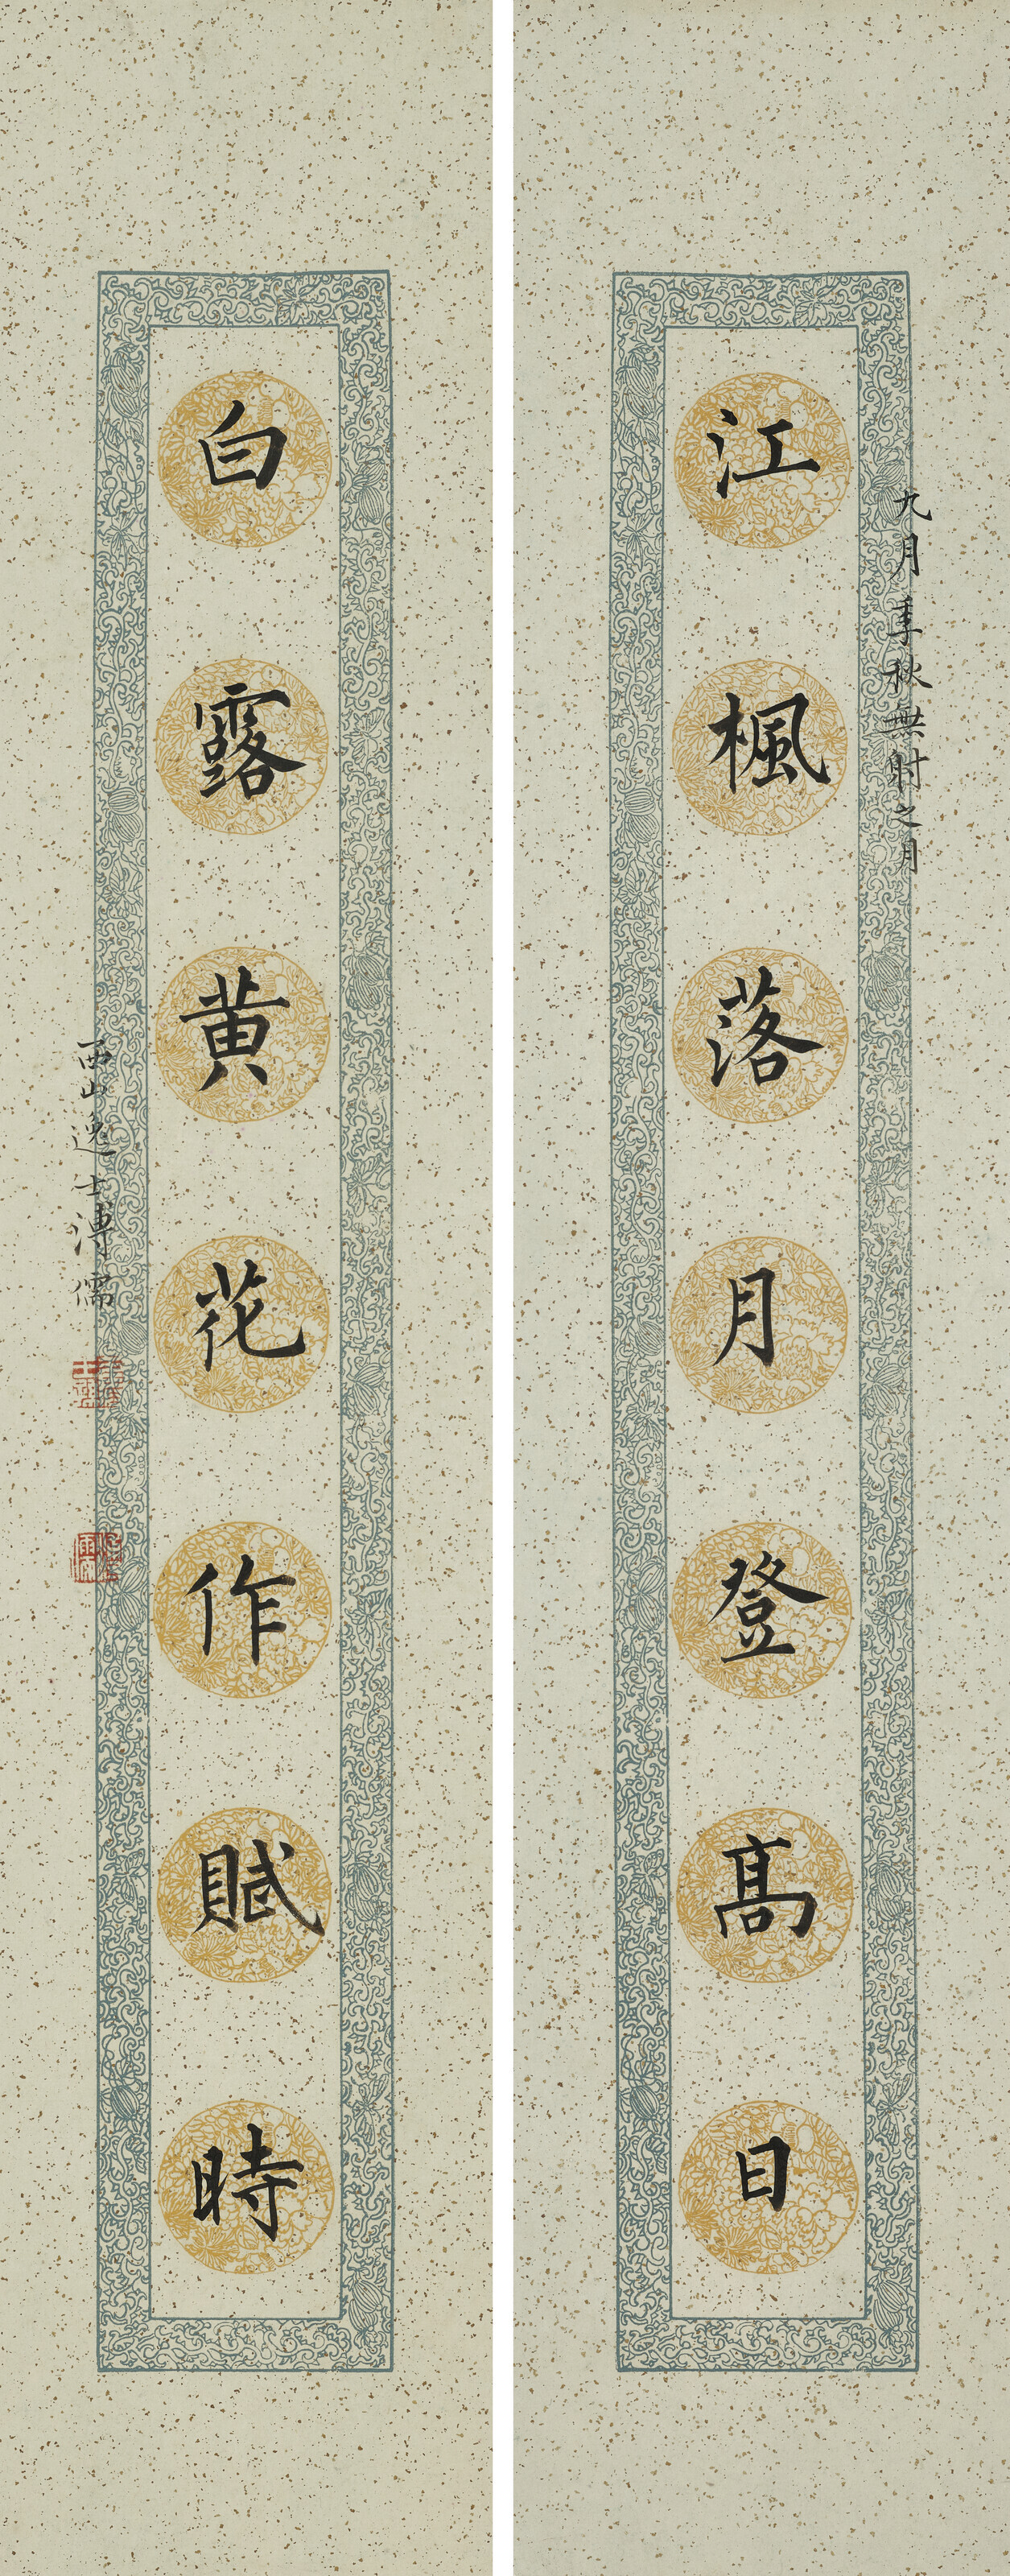 九月季秋無射之月
江楓落月登高日
白露黃花作賦時
西山逸士溥儒